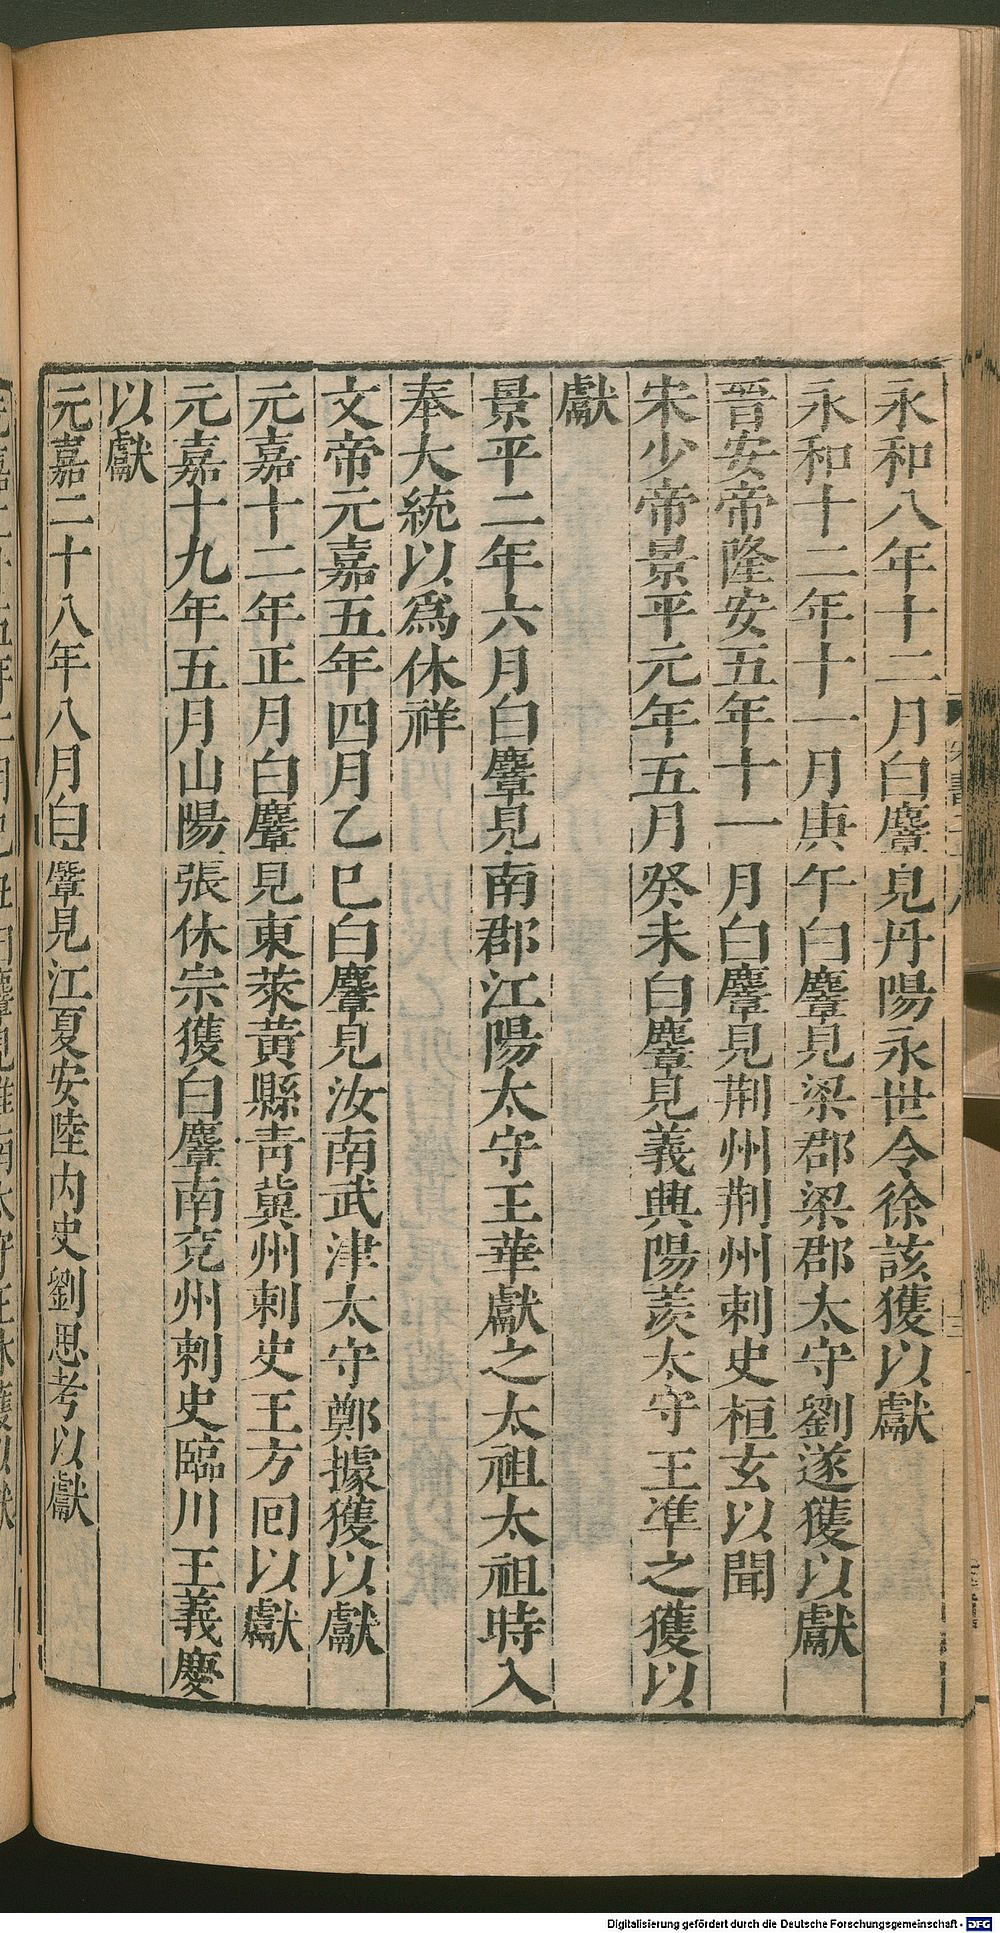 永和八年十二月白麞見丹陽永世令徐該獲以獻
永和十二年十一月庚午白麞見梁郡梁郡太守劉遂獲以獻
晉安帝隆安五年十一月白麞見荆州荆州刺史桓玄以聞
宋少帝景平元年五月癸未白麞見義興陽羨太守王准之獲以
獻
景平二年六月白麞見南郡江陽太守王華獻之太祖太祖時入
奉大統以爲休祥
文帝元嘉五年四月乙巳白麞見汝南武津太守鄭據獲以獻
元嘉十二年正月白麞見東萊黃縣青冀州刺史王方回以獻
元嘉十九年五月山陽張休宗獲白麞南兗州刺史臨川王義慶
以獻
元嘉二十八年八月白麞見江夏安陸内史劉思考以獻
Digitalisierung gefördert durch die Deutsche Forschungsgemeinschaft - DFG